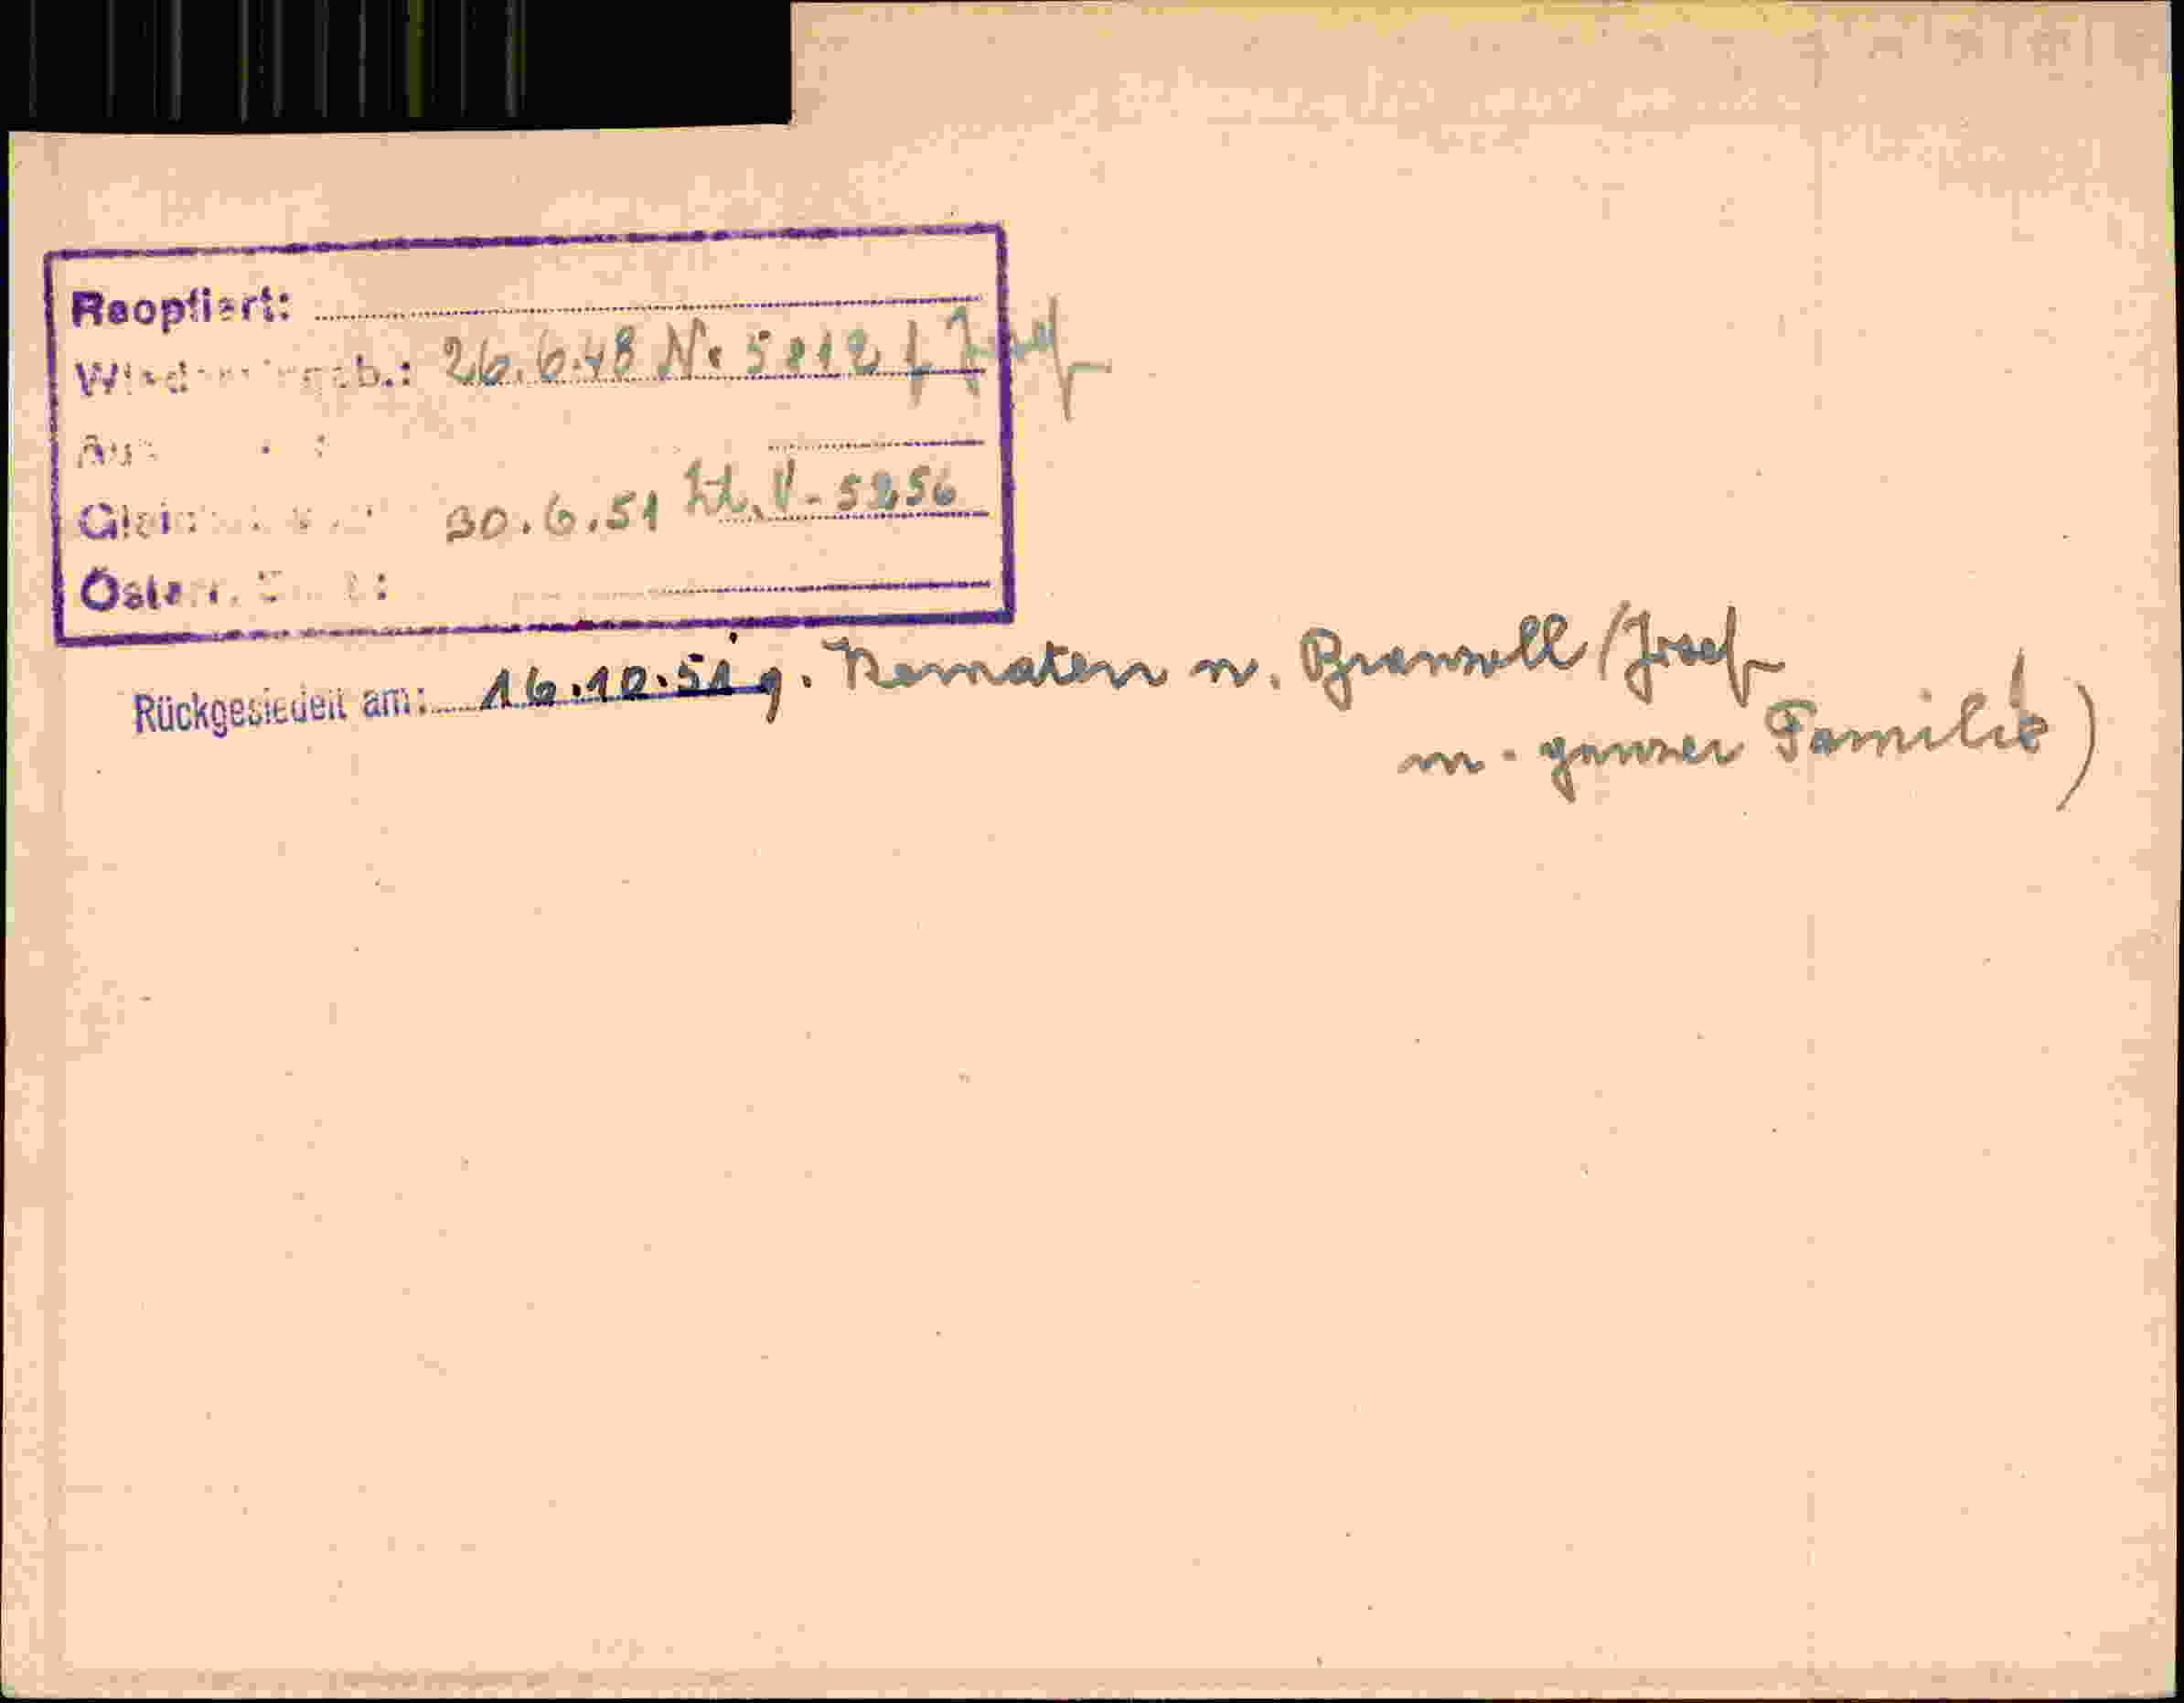 Reoptiert:
26.6.48 Nr 5812 f Josef
30.6.51 Zl. V - 5256
Rückgesiedelt am: 16.10.51 g. Kematen n. Branzoll (Josef
m. ganzer Familie)